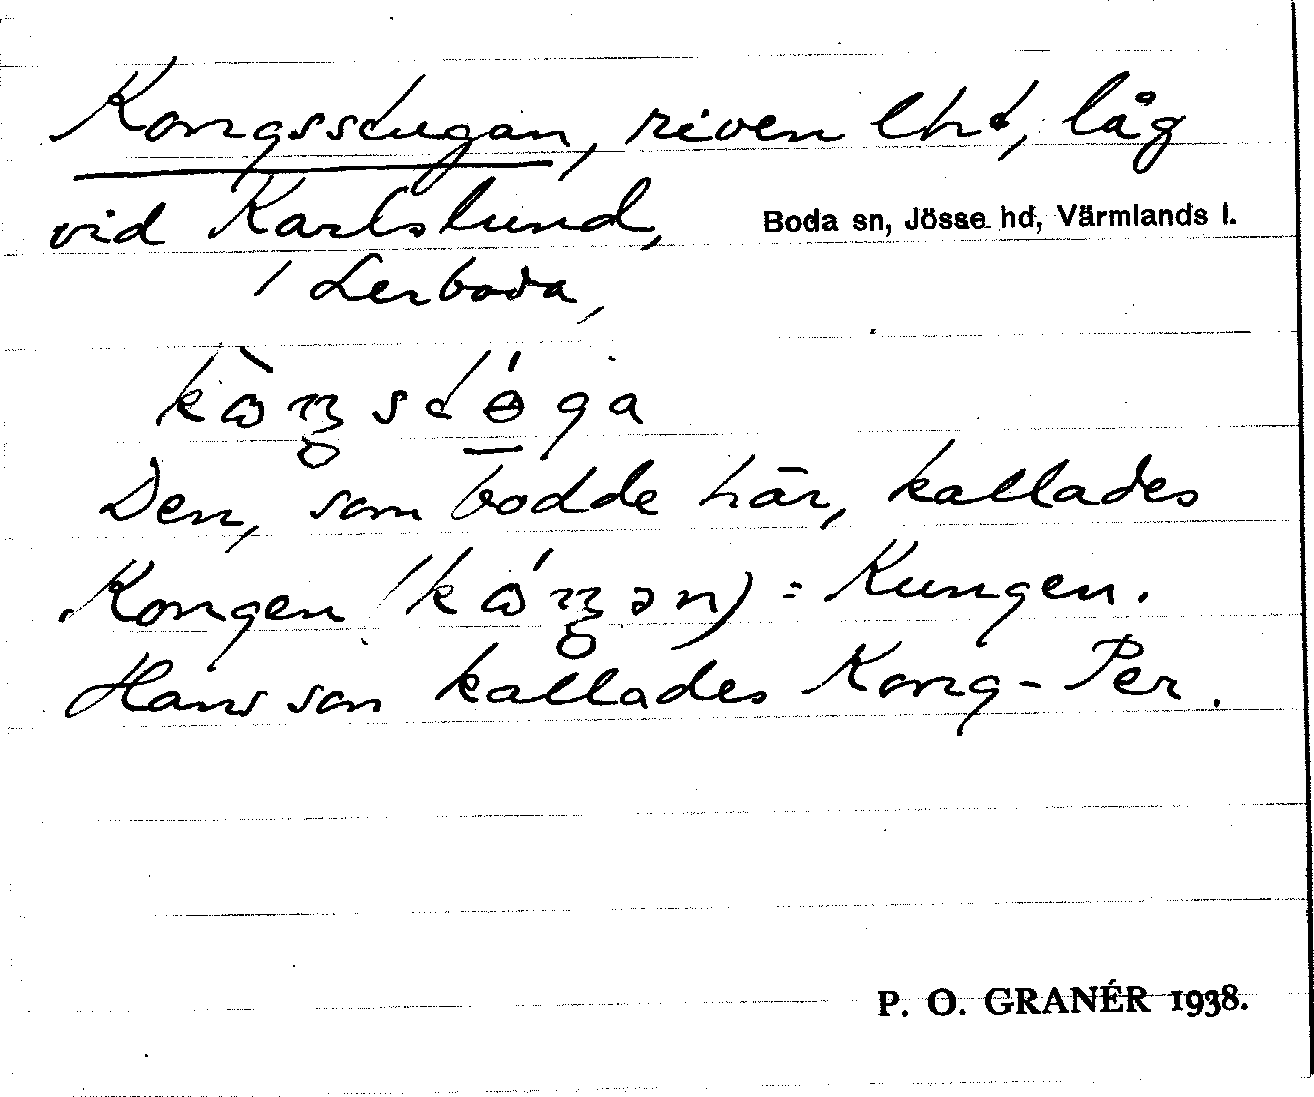 Kongsstugan, riven lht, låg
vid Karlslund, Boda sn, Jösse hd, Värmlands l.
i Lerboda,
kɷ̀ŋstɵ́ga
Den, som bodde här, kallades
Kongen (kɷ́ŋən) = Kungen.
Hans son kallades Kong-Per.
P. O. GRANÉR 1938.